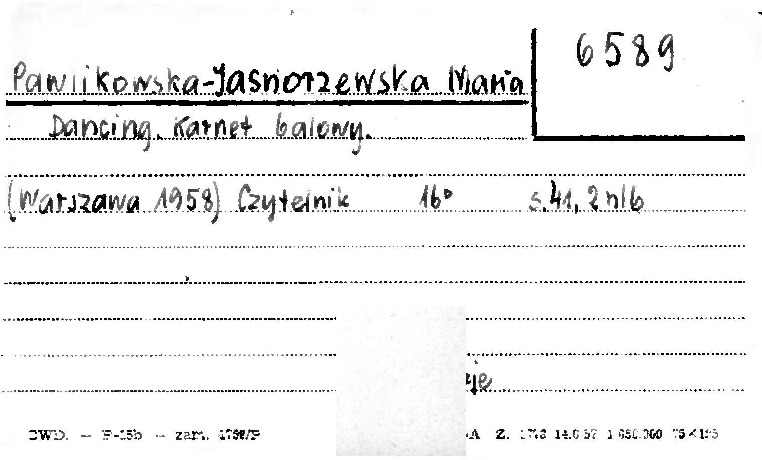 6589
Pawlikowska-Jasnorzewska Maria
Dancing. Karnet balowy.
(Warszawa 1958) Czytelnik 16° s.41, 2 nlb
CWD. — P-15b — zam. A Z. 14.6 57